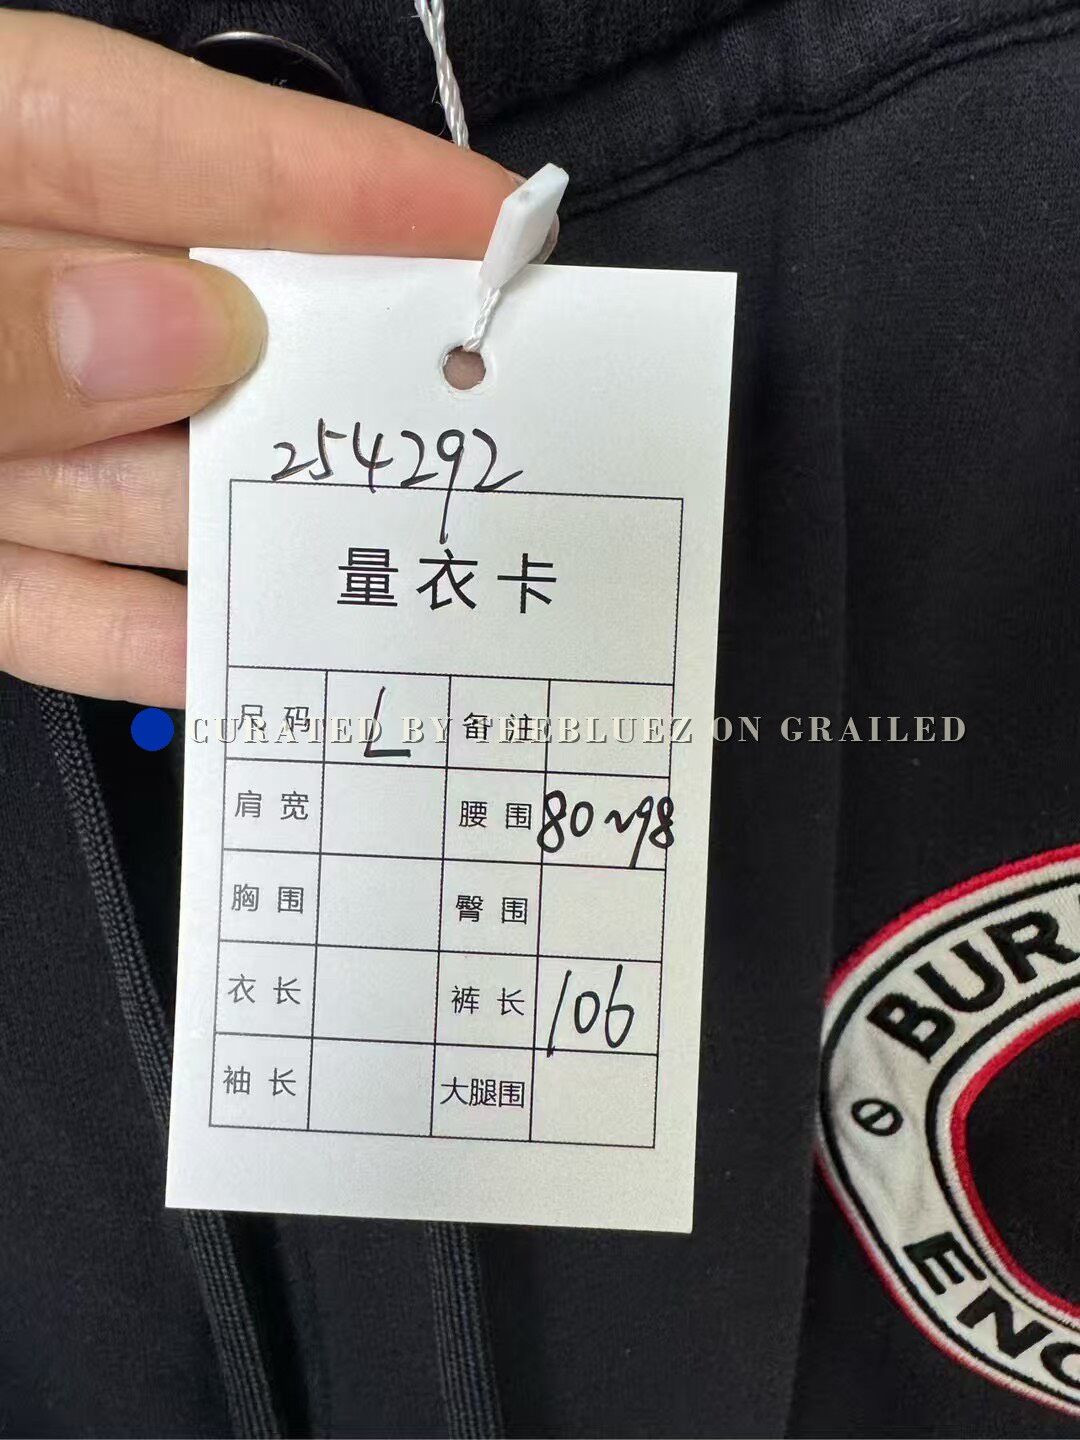 254292
量衣卡
尺码 L 备注
CURATED BY THEBLUEZ ON GRAILED
肩宽 腰围 80~98
胸围 臀围
衣长 裤长 106
袖长 大腿围
BUR
ENG